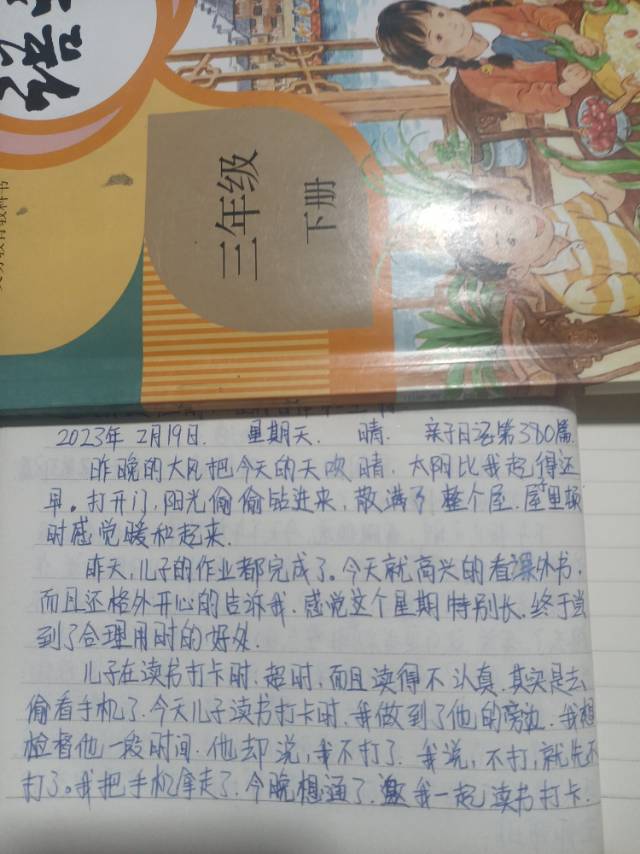 语
三年级
下册
义务教育教科书
2023年2月19日. 星期天. 晴. 亲子日记第380篇.
昨晚的大风把今天的天吹晴. 太阳比我起得还
早。打开门, 阳光偷偷钻进来, 散满了整个屋. 屋里顿
时感觉暖和起来.
昨天, 儿子的作业都完成了。今天就高兴的看课外书,
而且还格外开心的告诉我. 感觉这个星期特别长. 终于尝
到了合理用时的好处.
儿子在读书打卡时, 超时, 而且读得不认真. 其实是去
偷看手机了. 今天儿子读书打卡时. 我做到了他的旁边. 我想
检督他一段时间. 他却说, 我不打了. 我说, 不打, 就先不
打了。我把手机拿走了. 今晚想通了. 邀我一起读书打卡.